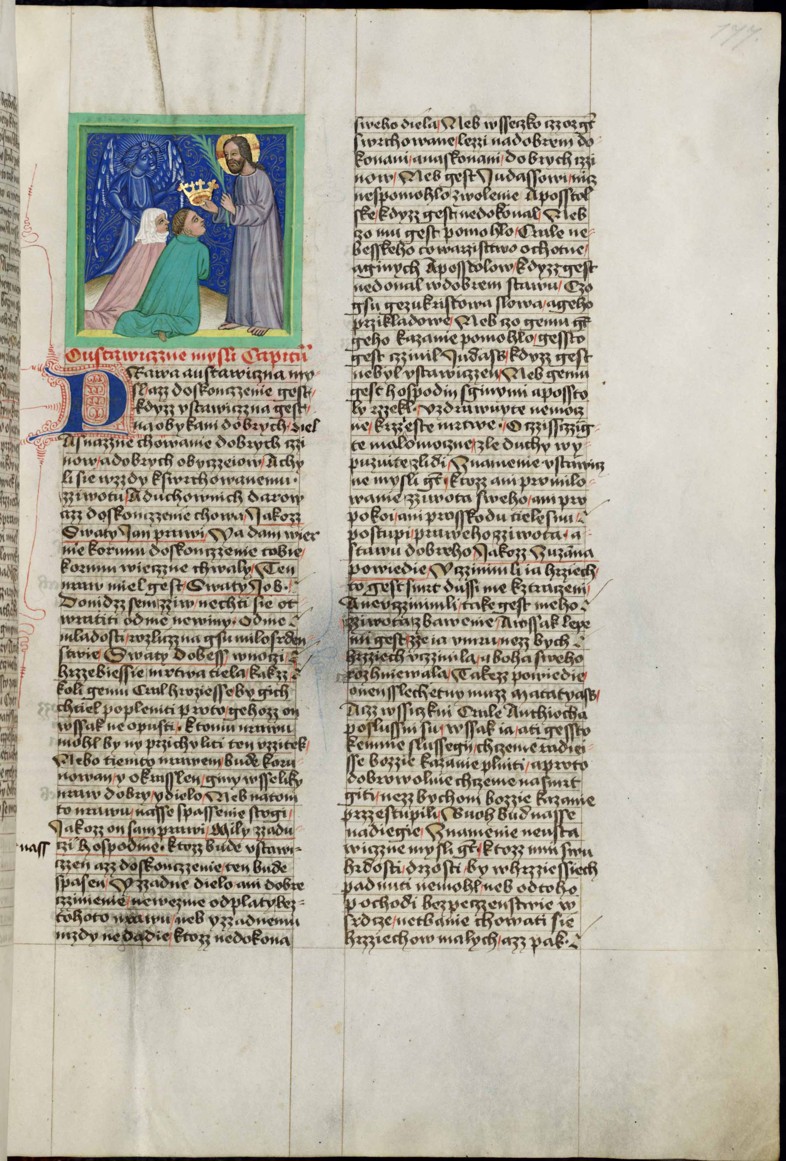 177.
O ustawiczne mysli Capitula
Stawa a ustawiczna my
sl azz doskonczzenie gest
kdyzz ustawiczna gest
na obykani dobrych diel
A snazzne chowanie dobrych czzi
now, a dobrych obyczzeiow, A chy
li sie wzzdy k swrchowanemu
zziwotu, A duchownich darow
azz doskonczzenie chowa, Jakozz
Swaty Jan prawi, Wa dam wier
nie korunu doskonczzenie tobie
korunu wieczzne chwaly, Ten
mraw miel gest, Swaty Job
Donidzz sem zziw nechti sie ot
wratiti od me newiny. Od me
mladosti rozluzzna gsu milosrden
stwie, Swaty Dobess wnoczi
hrzzebiessie mrtwa tiela, kakzz
koli gemu Cral hroziesse by gich
chtiel popleniti proto, gehozz on
wssak ne opusti, k tomu mrawu
mohl by ny przichyliti ten uzzitek
Nebo tiemto mrawem bude koru
nowan, y okrasslen, giny wsseliky
mraw dobry y dielo, Neb na tom
to mrawu, nasse spassenie stogi
Jakozz on sam prawi, Mily zzadu
nass czi hospodine, ktozz bude ustawi
czzen azz doskonczzenie, ten bude
spasen, Y zzadne dielo ani dobre
czzinienie, newezme odplaty bez
tohoto mrawu, neb y zzadnemu
mzdy ne dadie, ktozz nedokona
sweho diela, Neb wsseczko czzozz gt
swrchowane, lezzi na dobrem do
konani, a na skonani, dobrych czzi
now, Neb gest Judassowi nicz
nespomohlo zwolenie Aposstol
ske, kdyzz gest nedokonal, Neb
czo mu gest pomohlo, Crale ne
besskeho towarzisstwo ochotne
a ginych Aposstolow, kdyzz gest
nedonal w dobrem stawu, Czo
gsu gezukristowa slowa, a geho
przikladowe, Neb czo gemu gt
geho kazanie pomohlo, gessto
gest czzinil, Judass, kdyzz gest
nebyl ustawiczzen, Neb gemu
gest hospodin s ginymi aposto
ly rzzekl, Uzdrawuyte nemocz
ne, krzzieste mrtwe, Oczzissczzig
te malomoczne, zle duchy wy
puzuite z lidi, Znamenie ustawicz
ne mysli gt, ktozz ani pro milo
wanie zziwota sweho, ani pro
pokoi, ani pro sskodu tielesnu
postupi, praweho zziwota, a
stawu dobreho, Jakozz Zuzana
powiedie, Uczzinimli ia hrziech
to gest smrt dussi me k ztraczeni
A neuczzinimli, take gest meho
zziwota zbawenie, A wssak lepe
mi gest, zze ia umru, nezz bych
hrzziech uczzinila, a boha sweho
rozhniewala, Takezz powiedie
onen sslechetny muzz Matatyass
Azz wssiczkni Crale Anthiocha
poslussni su, wssak ia, ati gessto
ke mnie slussegi, chczeme radiei
sse bozzie kazanie plniti, a proto
dobrowolnie chczeme na smrt
giti, nezz bychom bozzie kazanie
przzestupili, Buoh bud nasse
nadiegie, Znamenie neusta
wiczzne mysli gt, ktozz mni swu
hrdosti, drzosti, by w hrzziessiech
padnuti nemohl, neb od toho
pochodi bezpeczzenstwie w
srdcze, netbanie chowati sie
hrzziechow malych, azz pak